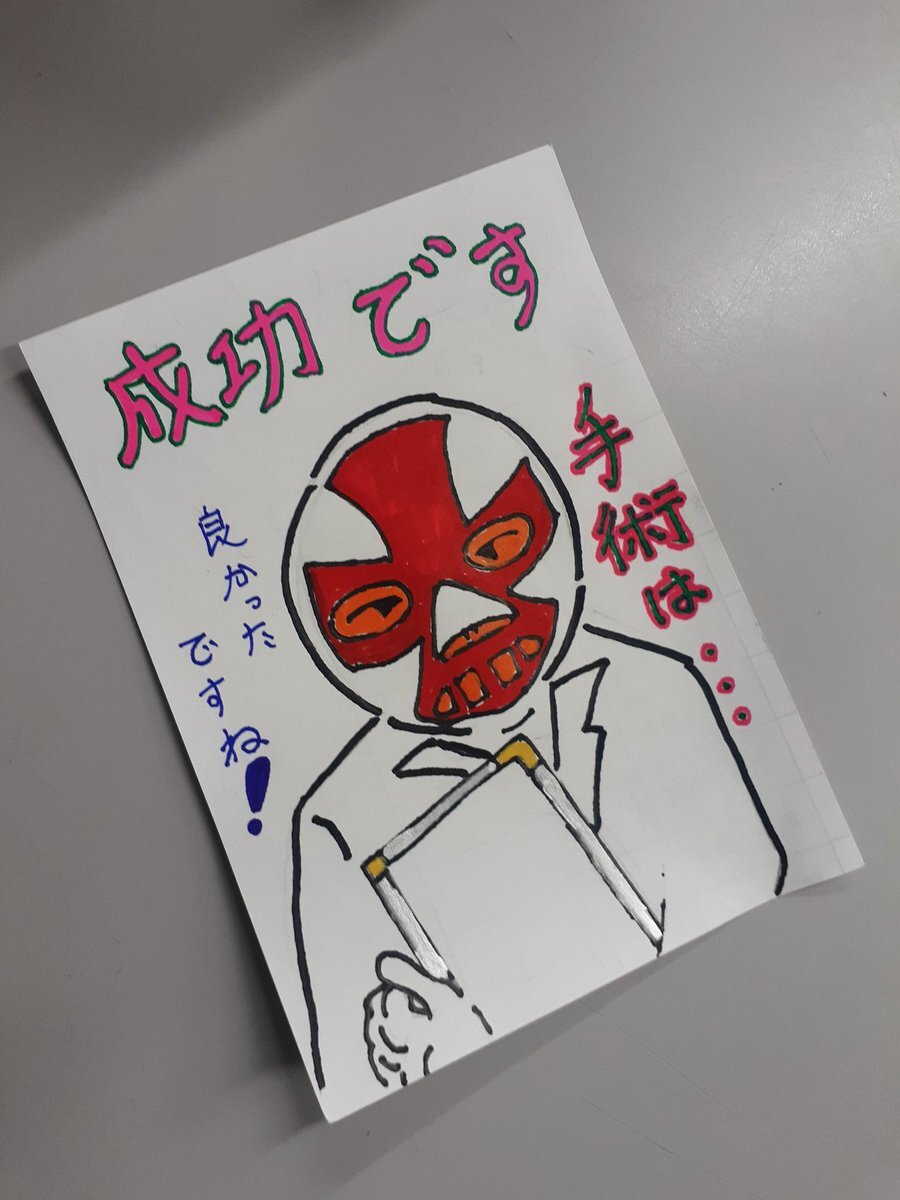 手術は・・・
成功です
良かった
ですね!